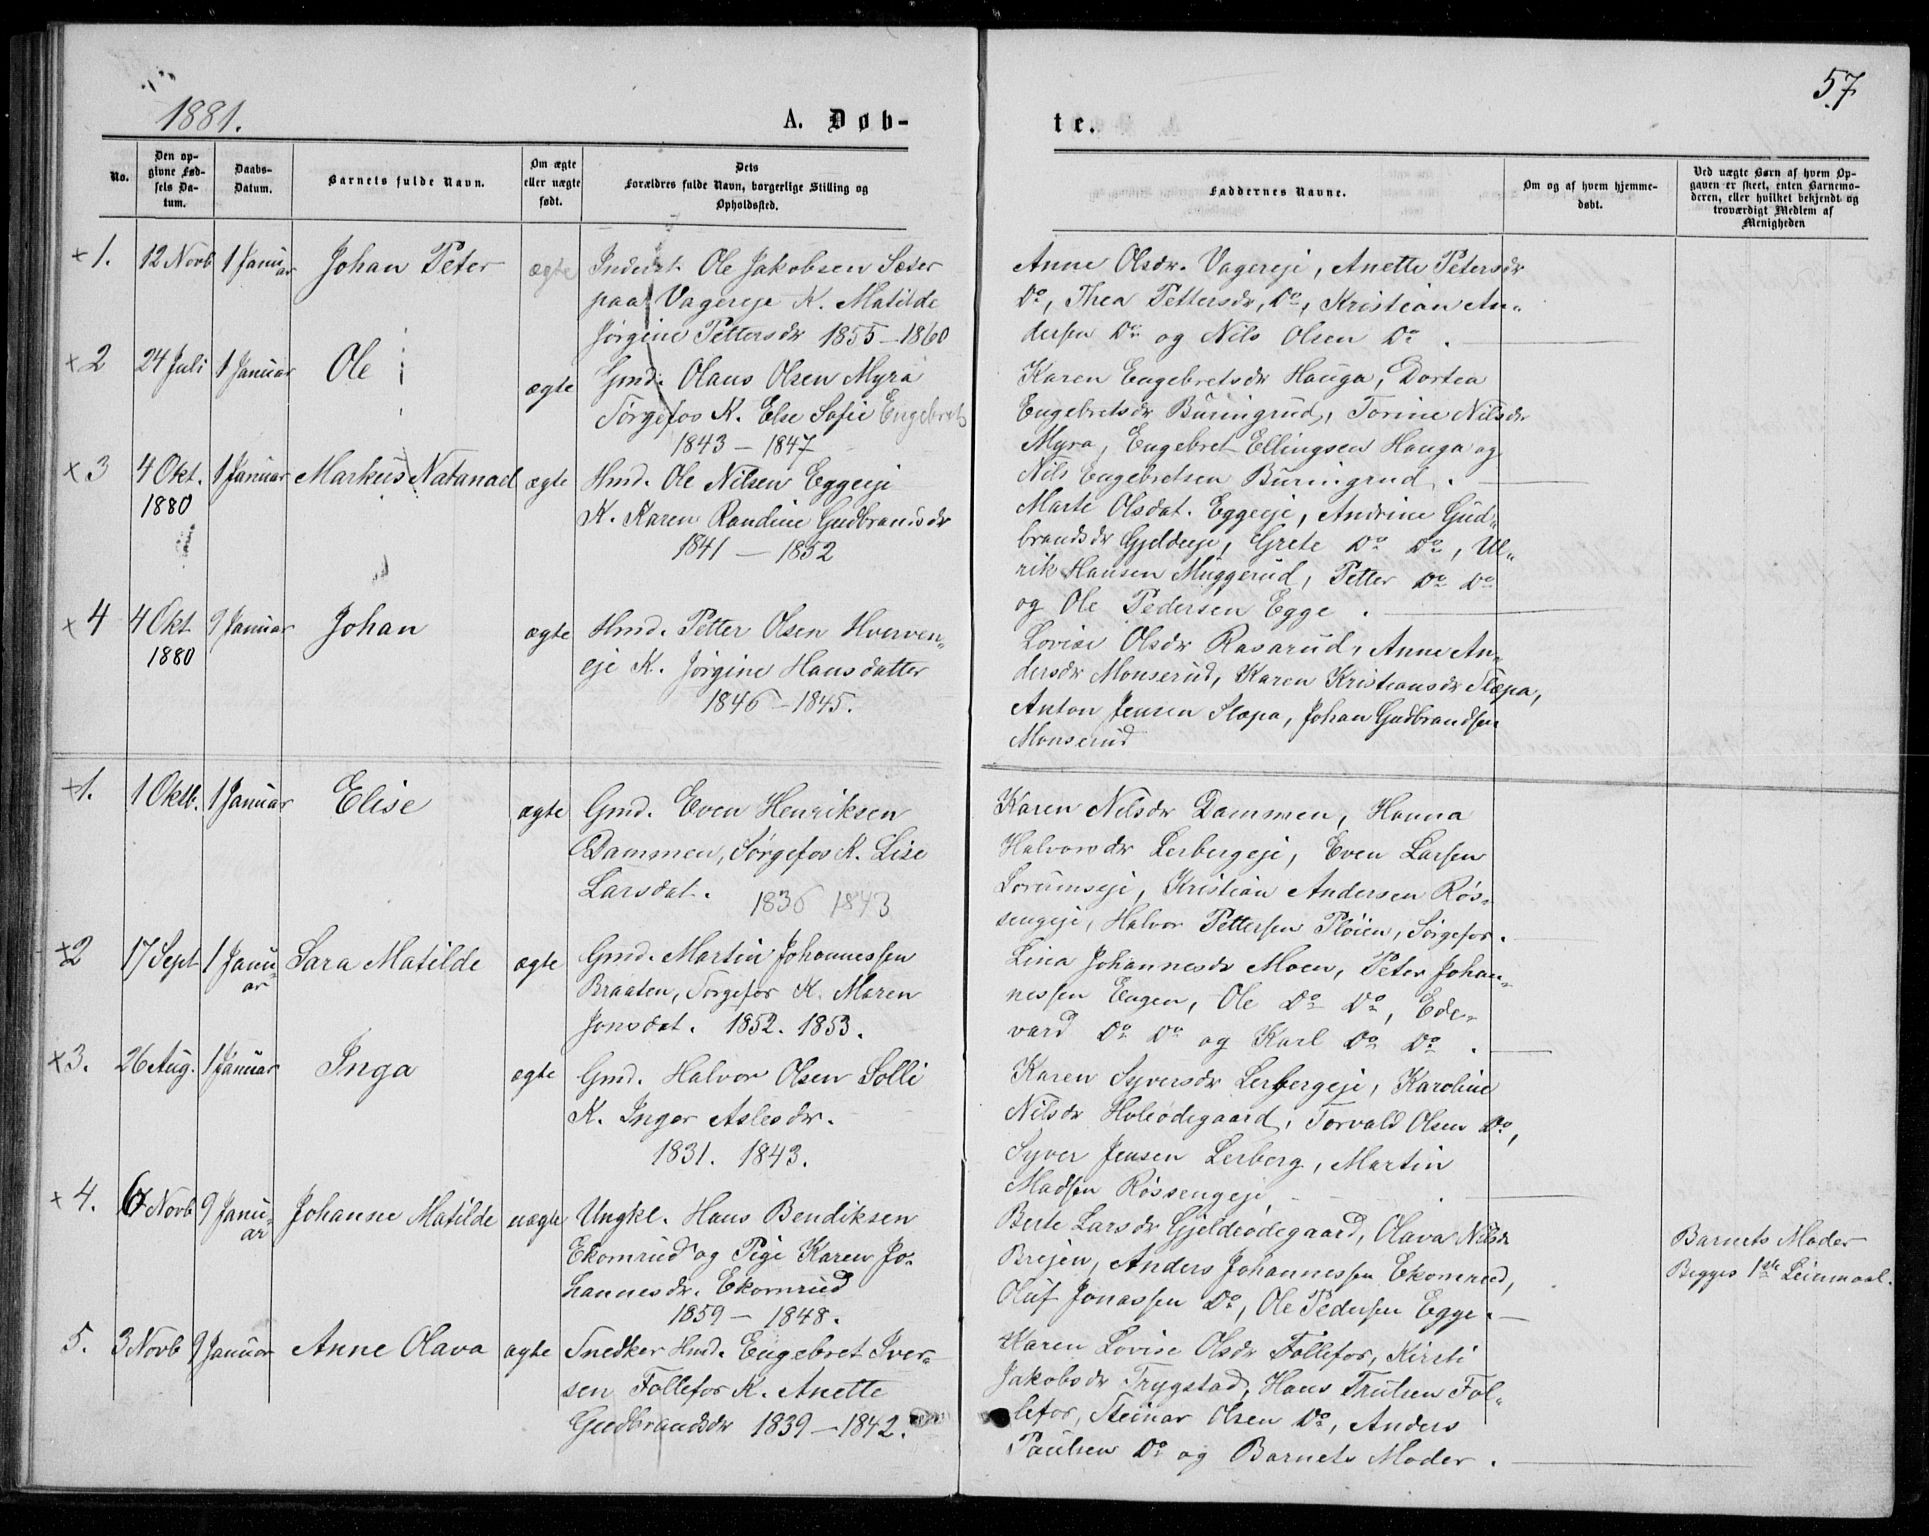 57
1881.
A. Døb-
te.
No.
Den op-
givne Fød-
sels Da-
tum.
Daabs-
Datum.
Barnets fulde Navn.
Om ægte
eller uægte
født.
Dets
Forældres fulde Navn, borgerlige Stilling og
Opholdssted.
Faddernes Navne.
Om og af hvem hjemme-
døbt.
Ved uægte Børn af hvem Op-
gaven er skeet, enten Barnemo-
deren, eller hvilket bekjendt og
troværdigt Medlem af
Menigheden
+ 1. 12 Novb 1 Janu-
ar
Johan Peter
ægte
Inderst. Ole Jakobsen Sæter
paa Vagereje K. Matilde
Jørgine Pettersdr 1855–1860
Anne Olsdr. Vagereje, Anette Petersdr
Do, Thea Pettersdr, Do, Kristian An-
dersen Do og Nils Olsen Do.
+ 2 24 Juli 1 Januar
Ole
ægte
Gmd. Olaus Olsen Myra
Sørgefos K. Else Sofie Engebrets
1843 – 1847
Karen Engebretsdr Hauga, Dortea
Engebretsdr Buringrud, Torine Nilsdr
Myra, Engebret Ellingsen Hauga og
Nils Engebretsen Buringrud.
x 3 4 Okt.
1880
1 Januar
Markus Natanael
ægte
Hmd. Ole Nilsen Eggeeje
K. Karen Randine Gudbrandsdr
1841 – 1852
Marte Olsdat. Eggeeje, Andrine Gud-
brandsdr Gjeldeeje, Grete Do Do, Ul-
rik Hansen Muggerud, Petter Do Do
og Ole Pedersen Egge.
x 4 4 Okt
1880
9 Januar
Johan
ægte
Hmd. Petter Olsen Hverven-
eje K. Jørgine Hansdatter
1846 – 1845.
Lovise Olsdr Rasarud, Anne An-
dersdr Monserud, Karen Kristiansdr Slæpa,
Anton Jensen Slæpa, Johan Gudbrandsen
Monserud
+ 1. 1 Oktb. 1 Januar
Elise
ægte
Gmd. Even Henriksen
Dammen, Sørgefos K. Lise
Larsdat. 1836 1843
Karen Nilsdr Dammen, Hanna
Halvorsdr Lerbergeje, Even Larsen
Lorumseje, Kristian Andersen Røs-
sengeje, Halvor Pettersen Pløien, Sørgefos.
+ 2 17 Sept 1 Janu-
ar
Sara Matilde
ægte
Gmd. Martin Johannessen
Braaten, Sørgefos K. Maren
Jonsdat. 1852. 1853.
Lina Johannesdr Moen, Peter Johan-
nessen Engen, Ole Do Do, Ede-
vard Do Do og Karl Do Do.
x 3. 26 Aug. 1 Januar
Inga
ægte
Gmd. Halvor Olsen Solli
K. Inger Aslesdr.
1831. 1843.
Karen Syversdr Lerbergeje, Karoline
Nilsdr Holeødegaard, Torvald Olsen Do,
Syver Jensen Lerberg, Martin
Madsen Røssengeje.
x 4. 6 Novb 9 Janu-
ar
Johanne Matilde
uægte
Ungkl. Hans Bendiksen
Ekornrud og Pige Karen Jo-
hannesdr. Ekornrud
1859 – 1848.
Berte Larsdr Gjeldeødegaard, Olava Nilsdr
Brejen, Anders Johannessen Ekornrud,
Oluf Jonassen Do, Ole Pedersen Egge.
Barnets Moder
Begges 1ste Leiermaal.
5. 3 Novb 9 Januar
Anne Olava
ægte
Snedker Hmd. Engebret Iver-
sen Follefos K. Anette
Gudbrandsdr 1839 – 1842.
Karen Lovise Olsdr Follefos, Kirsti
Jakobsdr Trygstad, Hans Trulsen Fol-
lefos, Steinar Olsen Do, Anders
Paulsen Do og Barnets Moder.